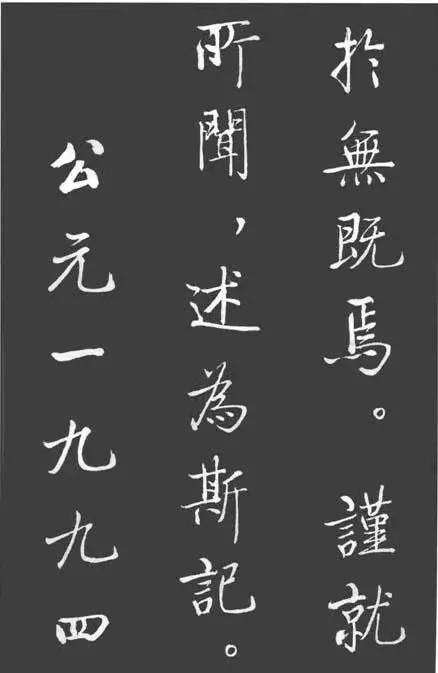 於無既焉。謹就
所聞，述為斯記。
公元一九九四